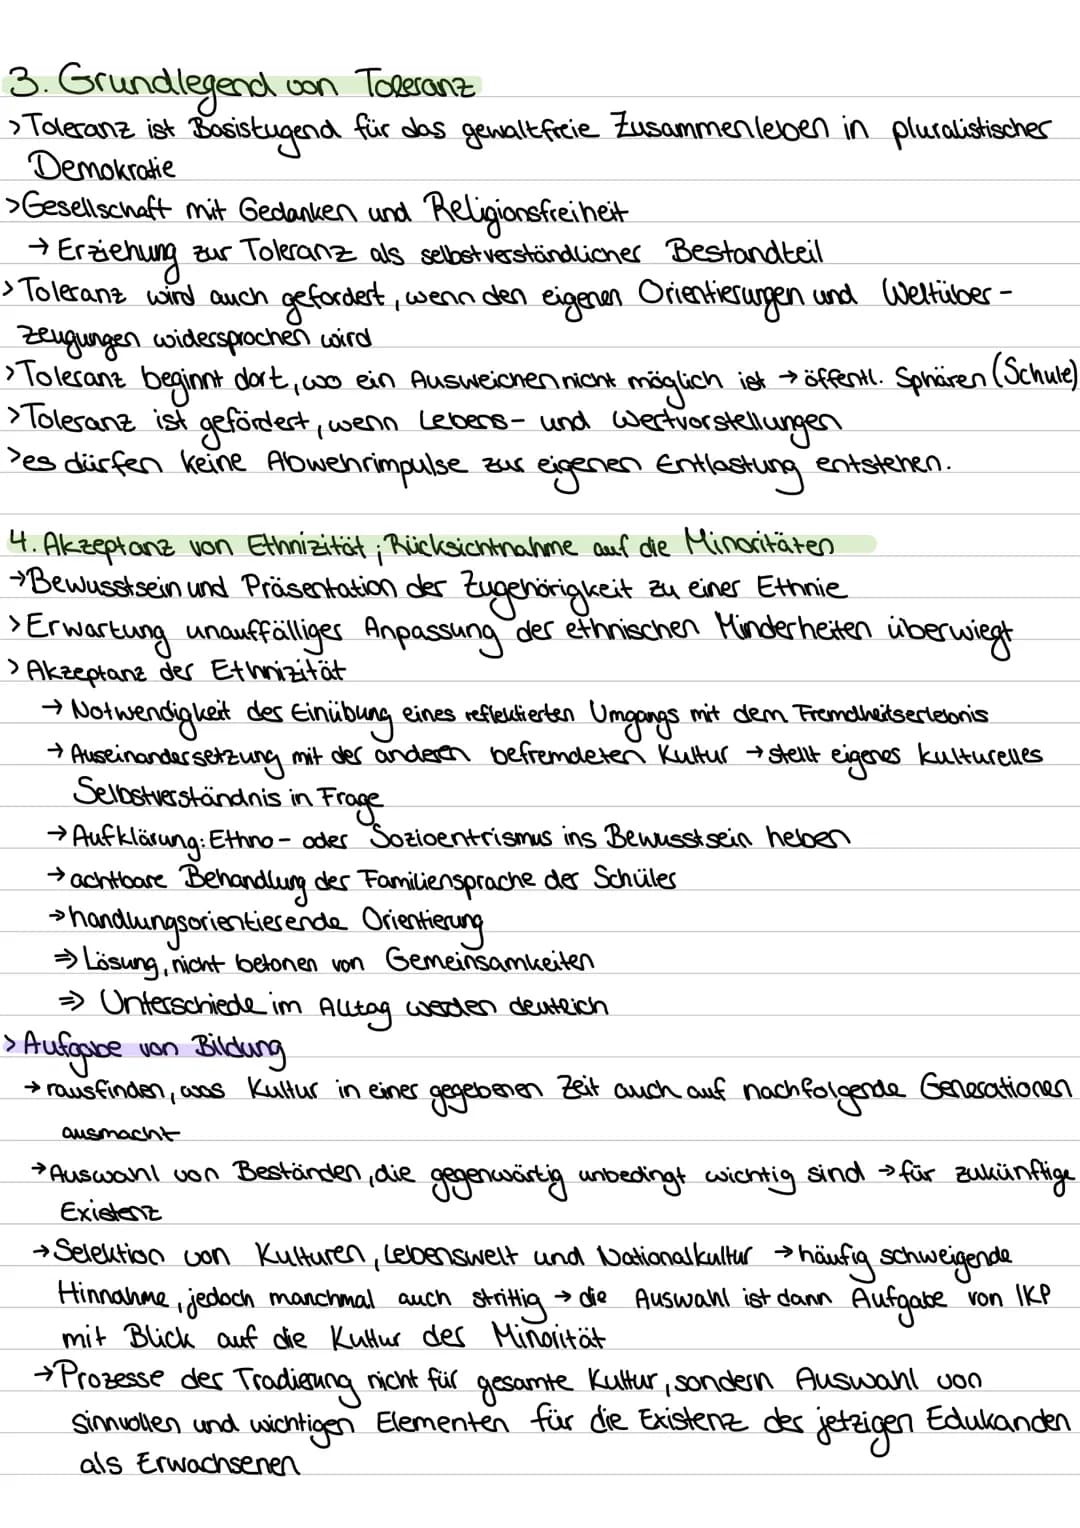 3. Grundlegend von Toleranz
> Toleranz ist Basistugend für das gewaltfreie Zusammenleben in pluralistischer
Demokratie
> Gesellschaft mit Gedanken und Religionsfreiheit
→ Erziehung zur Toleranz als selbstverständlicher Bestandteil
> Toleranz wird auch gefordert, wenn den eigenen Orientierungen und Weltüber-
zeugungen widersprochen wird
> Toleranz beginnt dort, wo ein Ausweichen nicht möglich ist → öffentl. Sphären (Schule)
> Toleranz ist gefördert, wenn Lebens- und Wertvorstellungen
> es dürfen keine Abwehrimpulse zur eigenen Entlastung entstehen.
4. Akzeptanz von Ethnizität ; Rücksichtnahme auf die Minoritäten
→ Bewusstsein und Präsentation der Zugehörigkeit zu einer Ethnie
> Erwartung unauffälliger Anpassung der ethnischen Minderheiten überwiegt
> Akzeptanz der Ethnizität
→ Notwendigkeit der Einübung eines reflektierten Umgangs mit dem Fremdheitserlebnis
→ Auseinandersetzung mit der anderen befremdeten Kultur → stellt eigenes kulturelles
Selbstverständnis in Frage
→ Aufklärung: Ethno- oder Sozioentrismus ins Bewusstsein heben
→ achtbare Behandlung der Familiensprache der Schüler
→ handlungsorientierende Orientierung
⇒ Lösung, nicht betonen von Gemeinsamkeiten
⇒ Unterschiede im Alltag werden deutlich
> Aufgabe von Bildung
→ rausfinden, was Kultur in einer gegebenen Zeit auch auf nachfolgende Generationen
ausmacht
→ Auswahl von Beständen, die gegenwärtig unbedingt wichtig sind → für zukünftige
Existenz
→ Selektion von Kulturen, Lebenswelt und Nationalkultur → häufig schweigende
Hinnahme, jedoch manchmal auch strittig → die Auswahl ist dann Aufgabe von IKP
mit Blick auf die Kultur der Minorität
→ Prozesse der Tradierung nicht für gesamte Kultur, sondern Auswahl von
sinnvollen und wichtigen Elementen für die Existenz der jetzigen Edukanden
als Erwachsenen